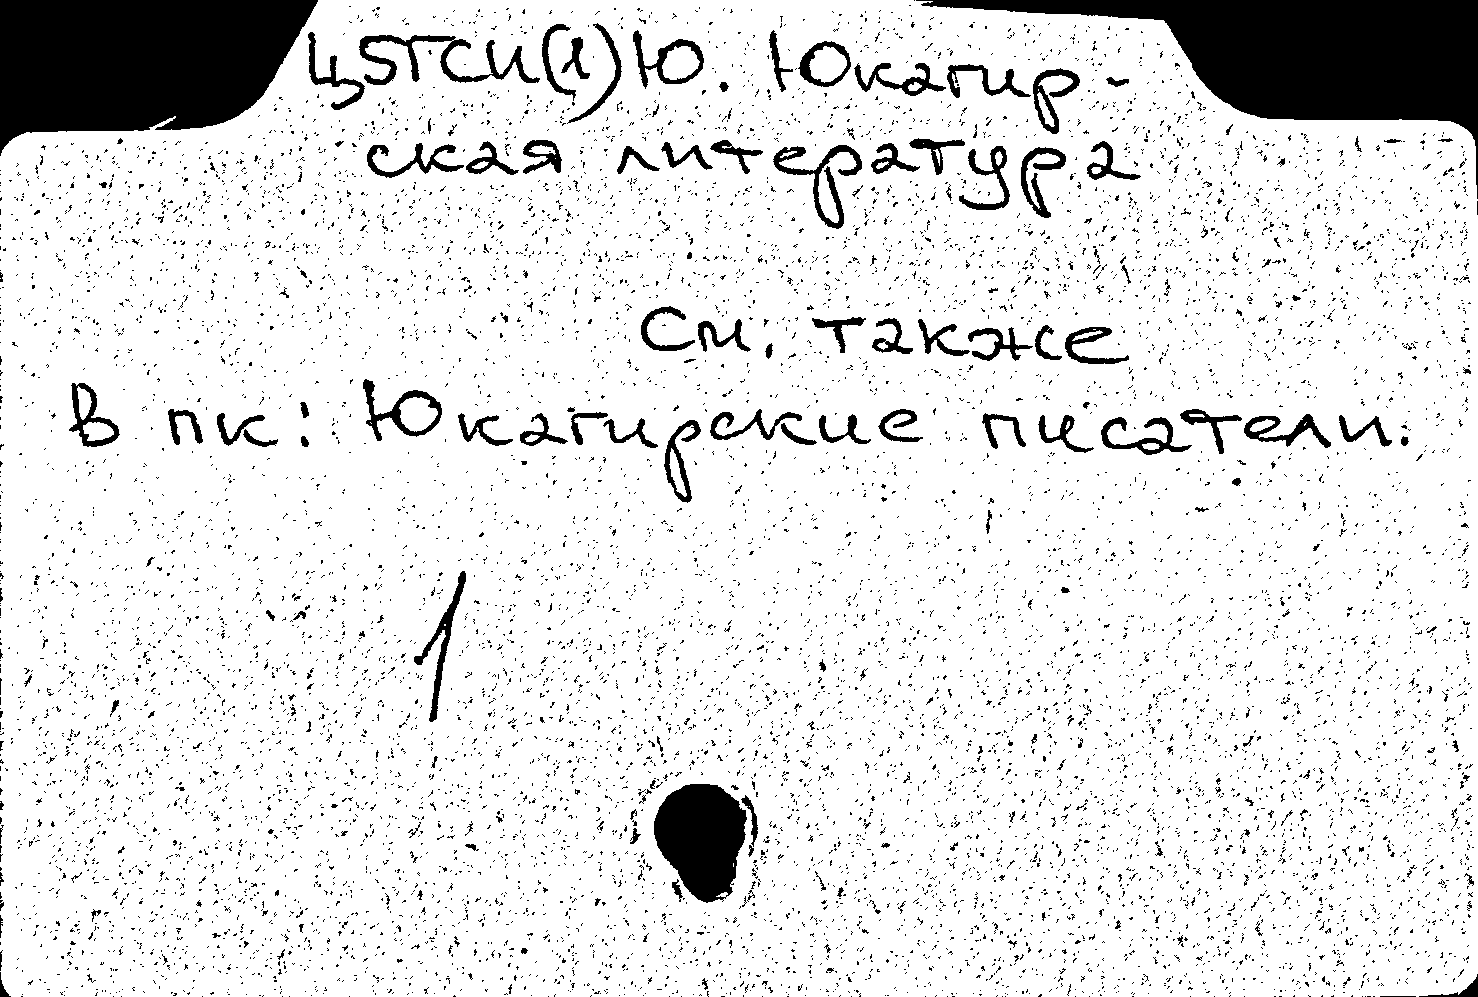 Ц5ГСИ(1)Ю. Юкагир-
ская литература
См. также
В пк: Юкагирские писатели.
1